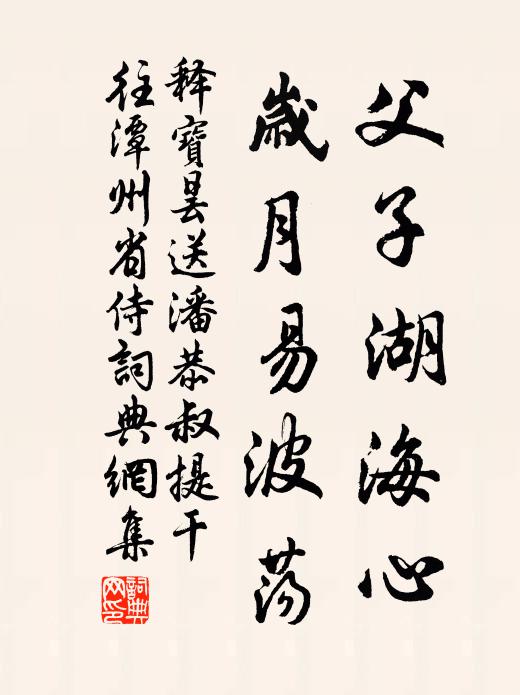 父子湖海心
歲月易波蕩
释寶曇送潘恭叔提干
往潭州省侍詞典網集
詞典網印